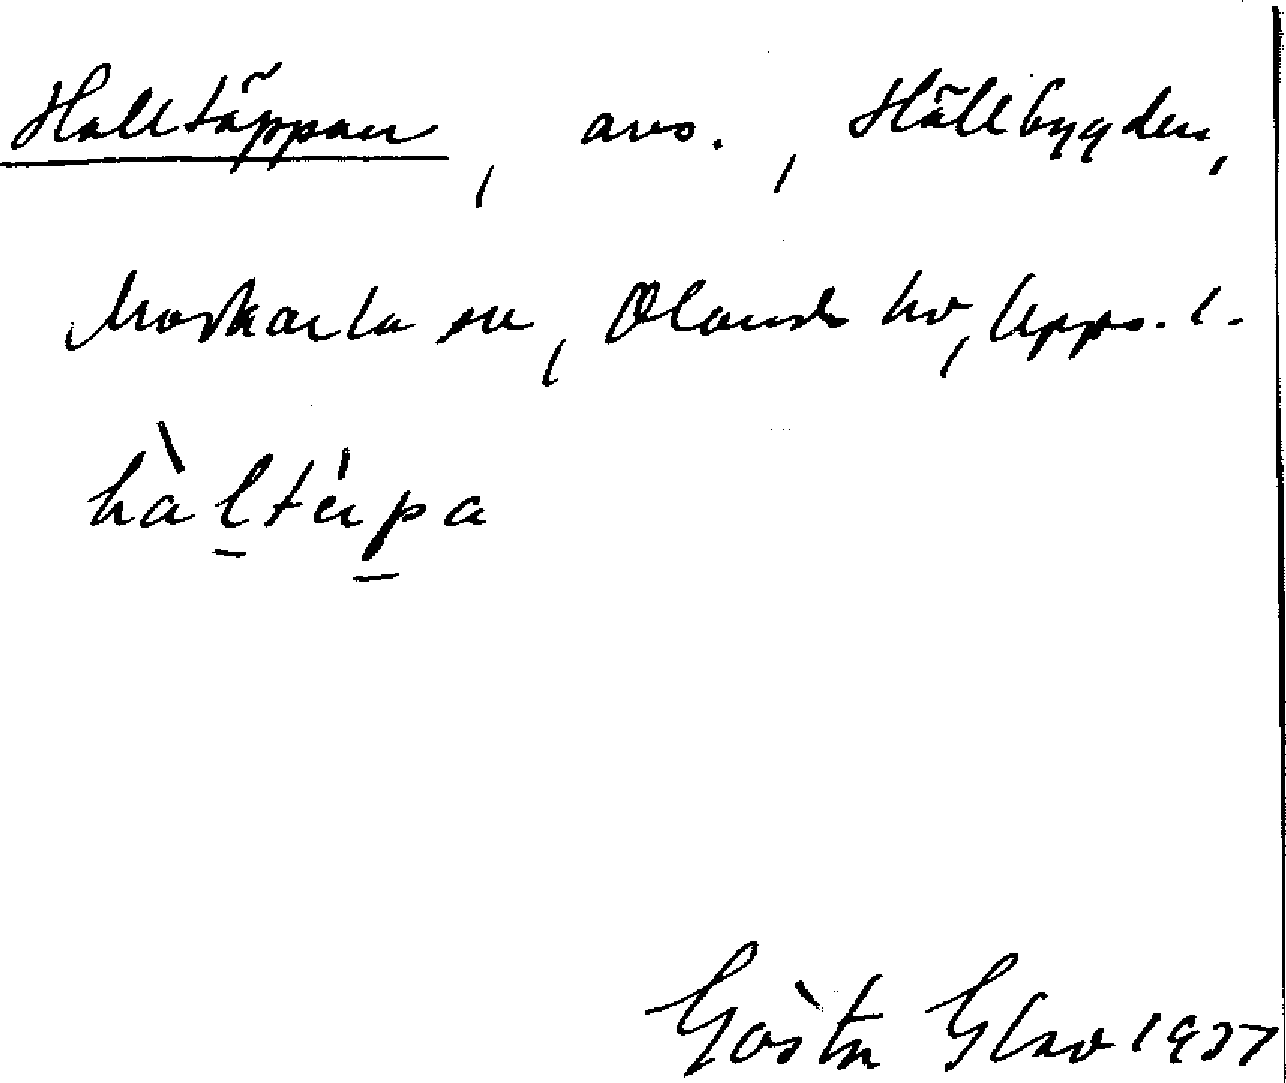 Halltäppan, avs., Hällbygden,
Morkarla sn, Olands hd, Upps. l.
hàltä́pa
Gösta 1937